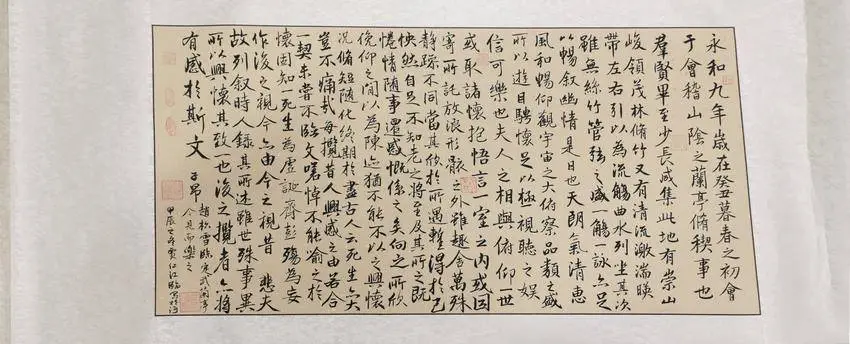 永和九年歲在癸丑暮春之初會
于會稽山陰之蘭亭脩稧事也
群賢畢至少長咸集此地有崇山
峻領茂林脩竹又有清流激湍暎
帶左右引以為流觴曲水列坐其次
雖無絲竹管弦之盛一觴一詠亦足
以暢叙幽情是日也天朗氣清惠
風和暢仰觀宇宙之大俯察品類之盛
所以遊目騁懷足以極視聽之娛
信可樂也夫人之相與俯仰一世
或取諸懷抱悟言一室之內或因
寄所託放浪形骸之外雖趣舍萬殊
靜躁不同當其欣於所遇暫得於己
怏然自足不知老之將至及其所之既
惓情隨事遷感慨係之矣向之所欣
俛仰之間以為陳迹猶不能不以之興懷
況脩短隨化終期於盡古人云死生亦大矣
豈不痛哉每攬昔人興感之由若合
一契未嘗不臨文嗟悼不能喻之於
懷固知一死生為虛誕齊彭殤為妄
作後之視今亦由今之視昔 悲夫
故列叙時人錄其所述雖世殊事異
所以興懷其致一也後之攬者亦將
有感於斯文 子昂
趙松雪臨定武蘭亭
今見而樂之
甲辰之冬